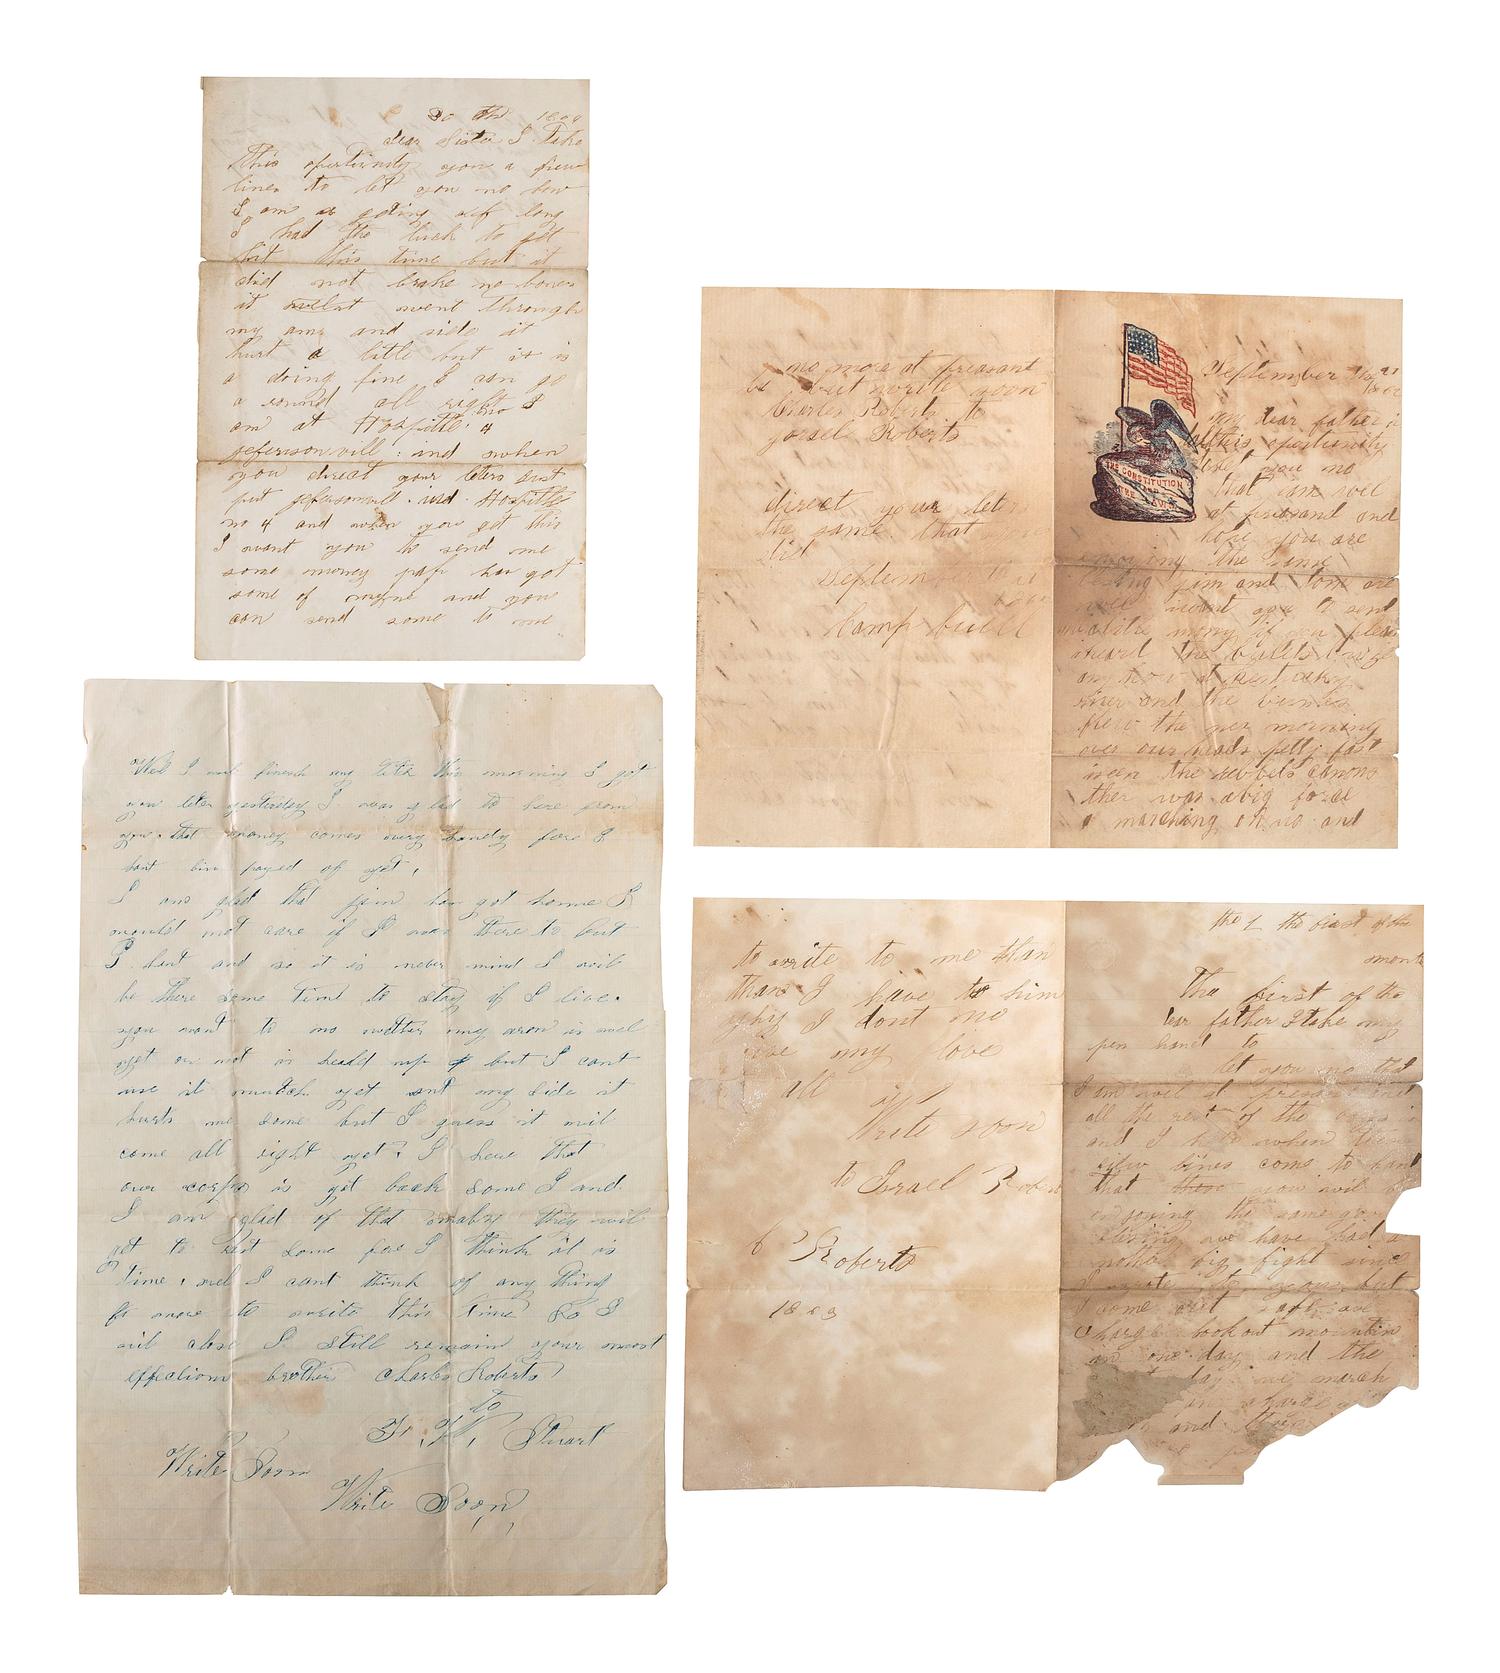 30 th 1864
dear Sister I Take
This opertunity you a few
lines to let you no how
I am a goting alf long
I had the luck to get
hit this time but it
did not brake no bones
at went through
my arm and side it
hurt a little but it is
a doing fine I can go
a round all right
am at Hospittle no 4
jefersonvill ind when
you direct your leters just
put jefersonvill ind Hospittle
no 4 and when you get this
I want you to send me
some money pap has got
some of myne and you
can send some to me
Wel I will finish my leter this morning I got
you leter yesterday I was glad to here from
you that money comes very handy fore I
haint bin payed of yet,
I am glad that jim has got home I
would not care if I was there to but
I haint and so it is never mind I will
be there some time to stay if I live.
you want to no wether my arm is wel
yet or not is heald up but I cant
use it mutch yet and my side it
hurts me some but I guess it will
come all right yet I hear that
our corps is got back some I and
I am glad of that maby they will
get to rest some fore I think it is
time, wel I cant think of any thing
more to write this time So I
will close I still remain your most
effectionn brother Charles Roberts
to
W, Stuart
Write Soon
Write Soon
no more at preasant
but write soon
Charles Roberts to
Roberts
direct your leters
the same that you
did
September
Camp buell
September
my dear father i
this opertunity
let you no
that i am well
at preasand and
hope you are
injoying the same
blesing jim and tom are
well i want you to send
me a litle mony if you pleas
i heard the bulets
any how at
river and the bumbs
flew the nex morning
over our heads pretty fast
i seen the rebbels canons
ther was a big force
a marching on us and
THE CONSTITUTION
AND
THE LAWS
to write to me than
than I have to him
why I dont no
give my love
all
Write soon
to Israel Roberts
C Roberts
1863
the 1 the first of the
month
The first of the
dear father I take my
pen hand to
let you no that
I am well at present and
all the rest of the boys is
and I hope when these
few lines come to hand
that you will be
enjoying the same good
blesing we have had a
nother big fight since
I wrote to you but
I come out safe we
charge lookout mountin
in one day and the
day we march
and